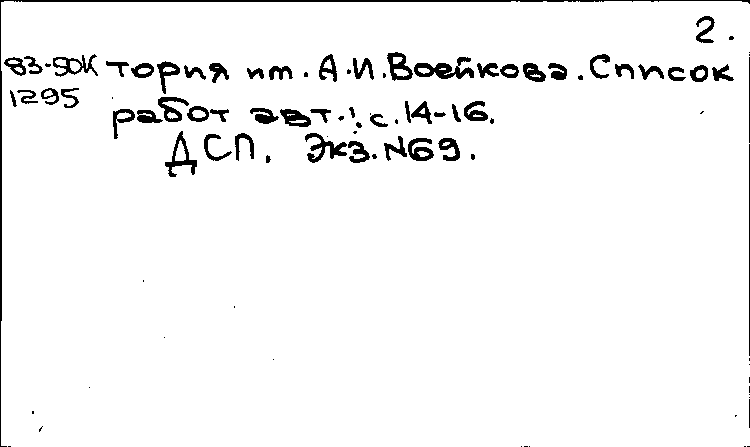 2.
83-50К тория им. А.И. Воейкова. Список
1295
работ авт.: с. 14-16.
ДСП. Экз. N69.